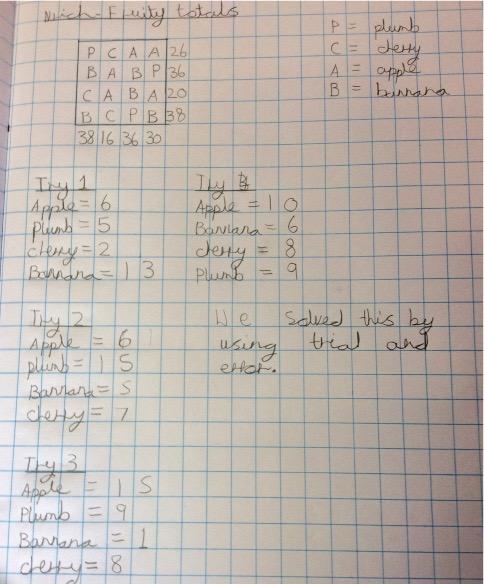 Nrich - Fruity totals
P = plumb
C = cherry
A = apple
B = bannana
P C A A 26
B A B P 36
C A B A 20
B C P B 38
38 16 36 30
Try 1
Apple = 6
plumb = 5
cherry = 2
Bannana = 13
Try
Apple = 10
Bannana = 6
cherry = 8
Plumb = 9
Try 2
Apple = 6
plumb = 15
Bannana = 5
cherry = 7
We solved this by
using trial and
error.
Try 3
Apple = 15
Plumb = 9
Bannana = 1
cherry = 8